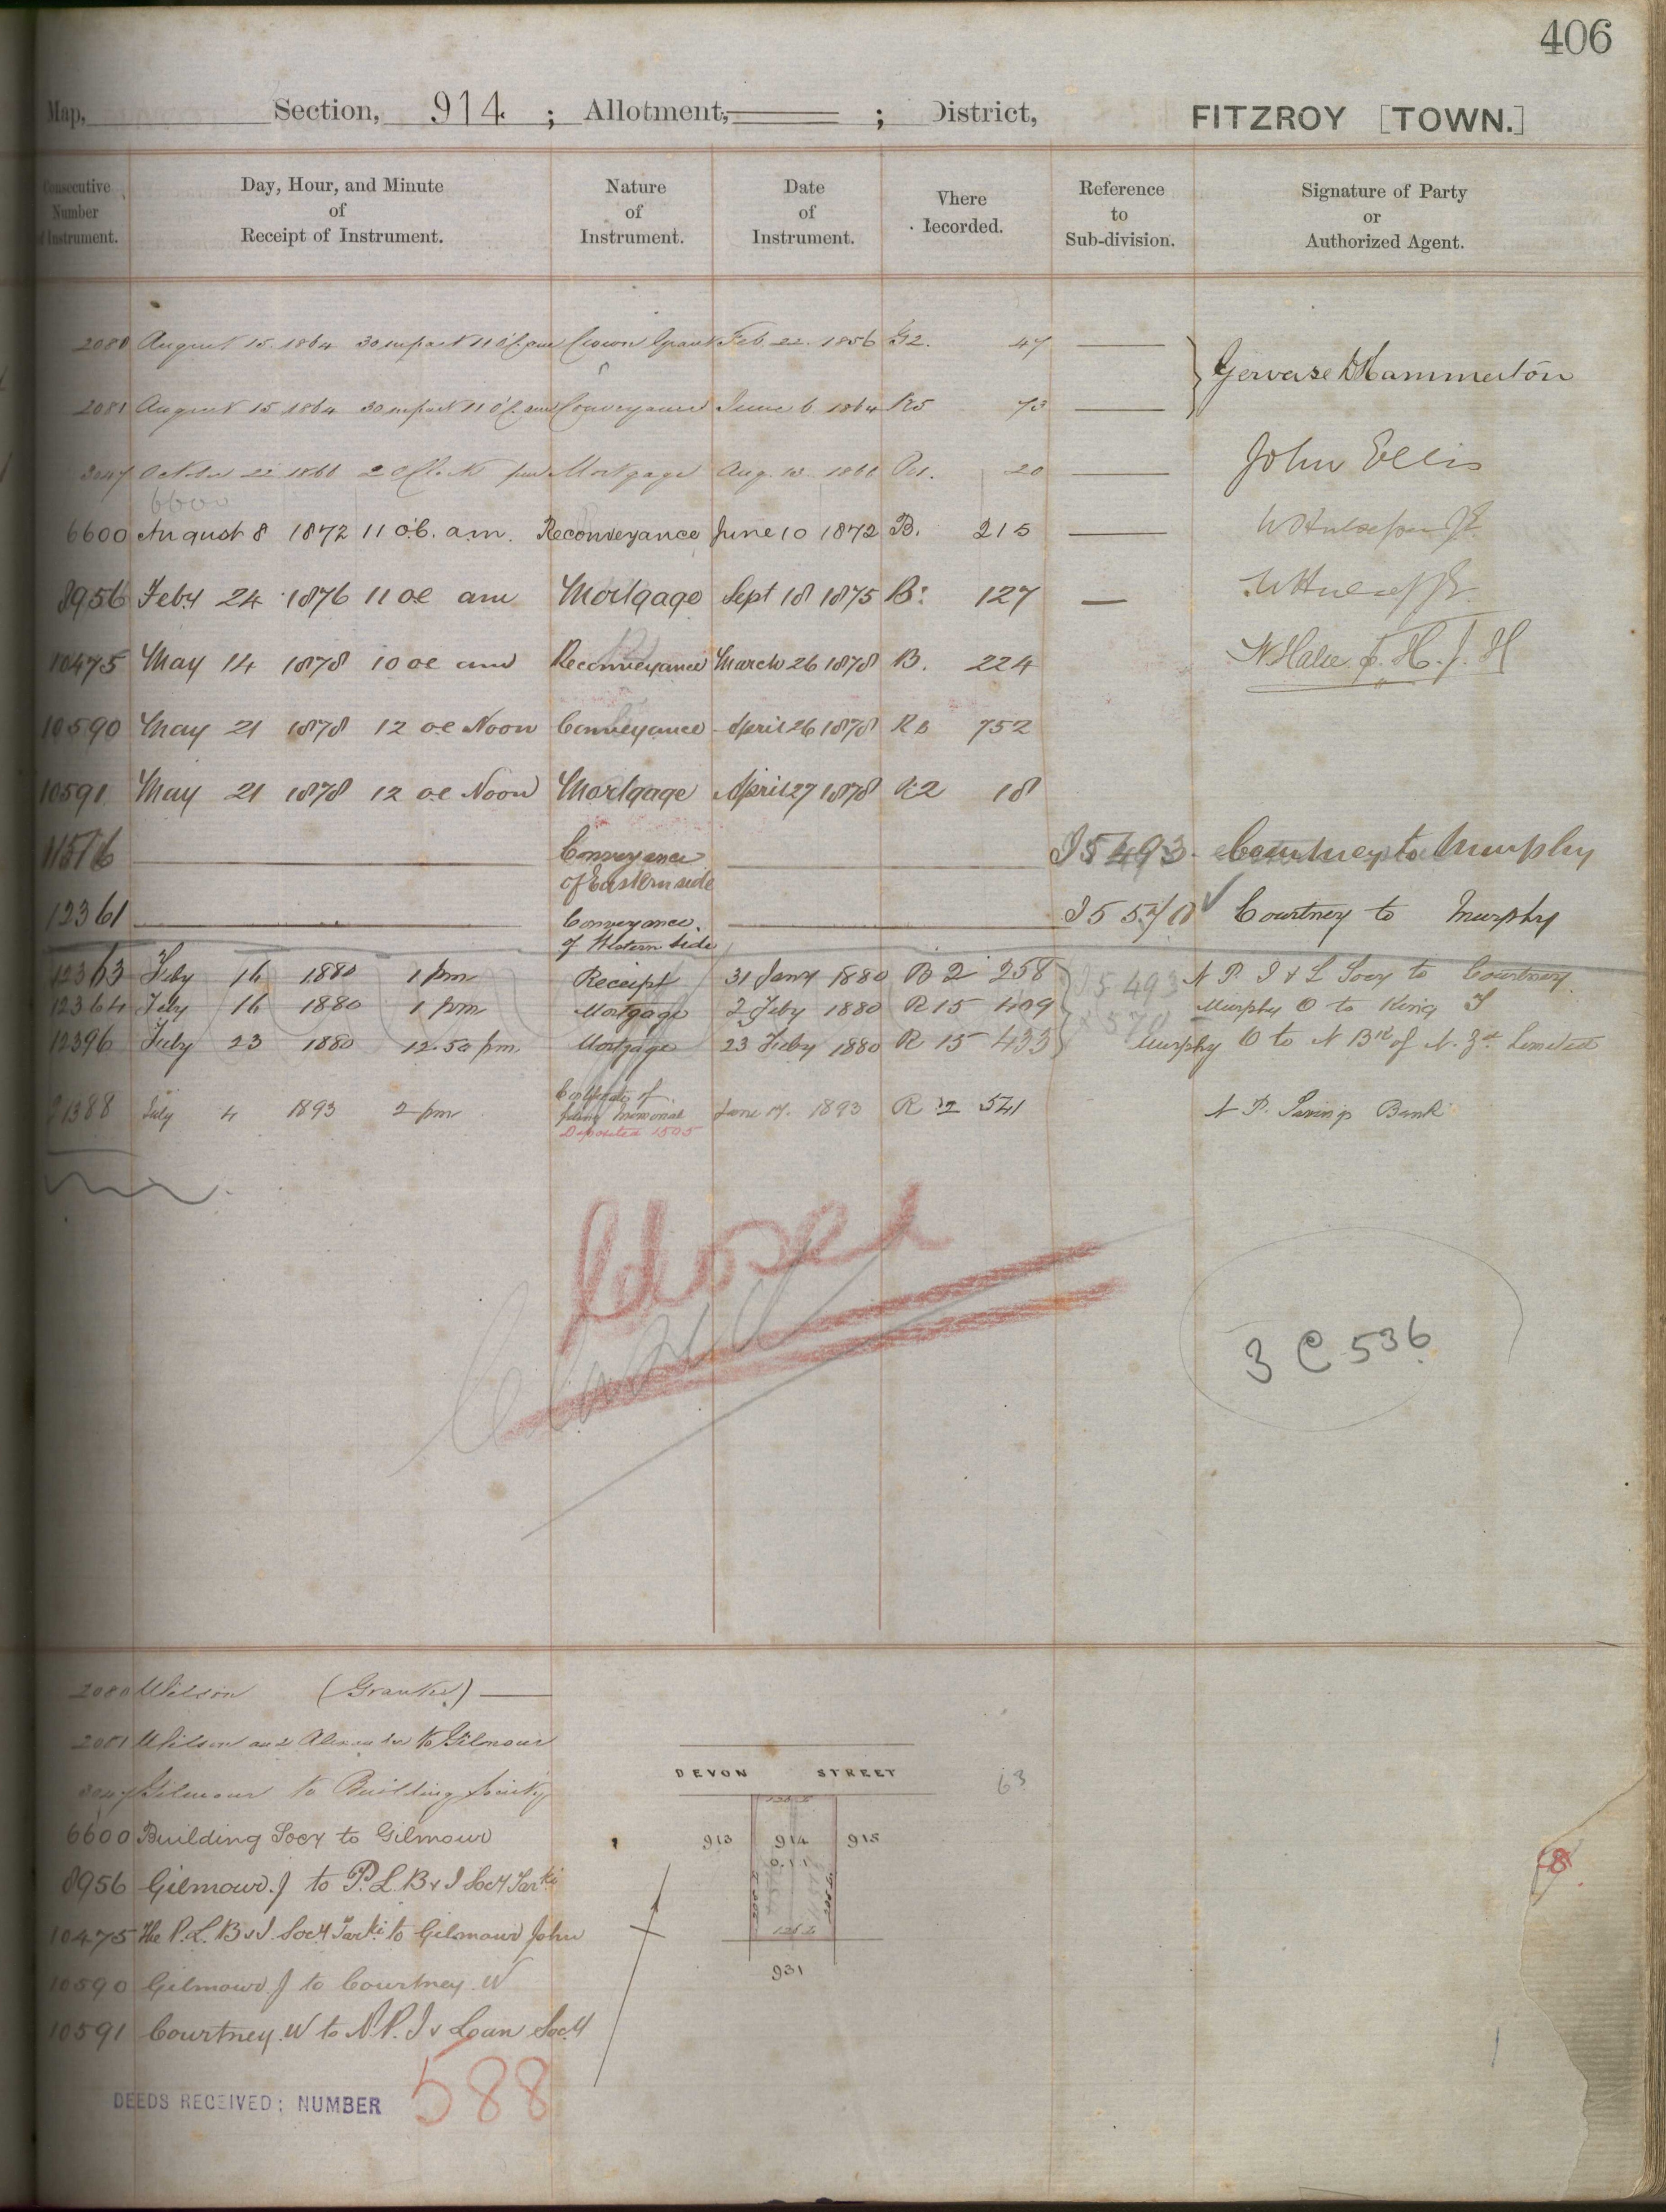 406
Map, Section, 914. ; Allotment, ; District, FITZROY [TOWN.]
Consecutive Number of Instrument. Day, Hour, and Minute of Receipt of Instrument. Nature of Instrument. Date of Instrument. Where Recorded. Reference to Sub-division. Signature of Party or Authorized Agent.
2080 August 15. 1864 30 m past 11 o'C. am Crown Grant Feb. 22. 1856 G2. 47
Gervase D Hammerton
2081 August 15 1864 30 m past 11 o'C. am Conveyance June 6 1864 R5 73
3047 October 22 1866 2 o'Clock pm Mortgage Aug. 13. 1866 20 John Ellis
6600
6600 August 8 1872 11 o'c. a.m. Reconveyance June 10 1872 B. 215
8956 Feby 24 1876 11 oc am Mortgage Sept 18 1875 B: 127
10475 May 14 1878 10 oc am Reconveyance March 26 1878 B. 224
10590 May 21 1878 12 oc Noon Conveyance April 26 1878 752
10591 May 21 1878 12 oc Noon Mortgage April 27 1878 R2 18
11516 Conveyance of Eastern side I5 493 Courtney to Murphy
12361 Conveyance of Western side I5 570 Courtney to Murphy
12363 Feby 16 1880 1 pm Receipt 31 Jany 1880 B 2 258 I5 493 N P. I & L Socy to Courtney
12364 Feby 16 1880 1 pm Mortgage 2 Feby 1880 R 15 409 Murphy O to King J
12396 Feby 23 1880 12.50 pm Mortgage 23 Feby 1880 R 15 433 570 Murphy O to N Bk of N. Zd. Limited
21388 July 4 1893 2 pm Certificate of filing memorial June 17. 1893 R 32 541 N P. Savings Bank
Deposited 1505
Closed
Closed
3 C 536
2080 Wilson (Grantee)
2081 Wilson and Alexander to Gilmour
3047 Gilmour to Building Society
6600 Building Socy to Gilmour
8956 Gilmour. J to P. L. B & I Socy Tarki
10475 The P. L. B & I. Socy Tarki to Gilmour John
10590 Gilmour. J to Courtney. W
10591 Courtney. W to N P. I & Loan Socy
DEVON STREET
63
913 914 915
0. 1. 1
126.2
931
8
DEEDS RECEIVED: NUMBER 588